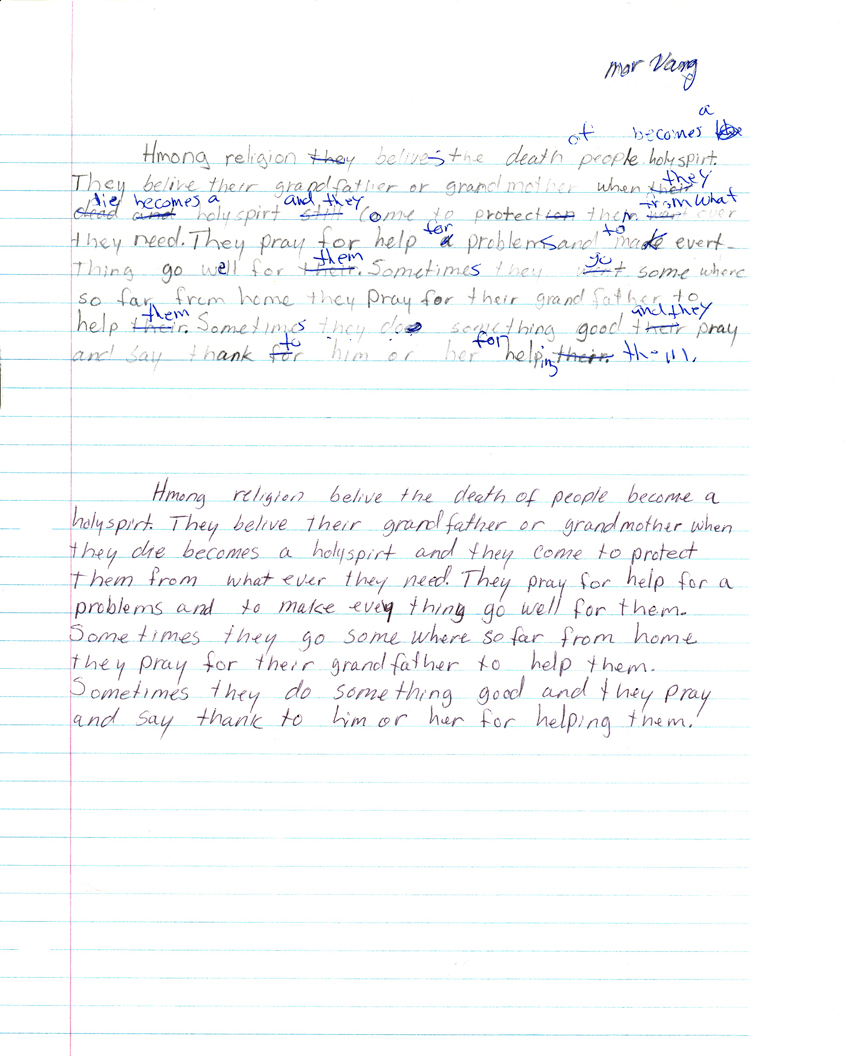 mor Vang
a
of becomes
Hmong religion they belives the death people holyspirt.
they
They belive their grandfather or grandmother when their
die becomes a and they from what
dead and holyspirt still come to protection them ever
for to
they need. They pray for help a problems and make evert-
them go
Thing go well for their. Sometimes they some where
so far from home they pray for their grandfather to
them and they
help their. Sometimes they do something good their pray
to for
and say thank for him or her helping their. them.
Hmong religion belive the death of people become a
holyspirt. They belive their grandfather or grandmother when
they die becomes a holyspirt and they come to protect
them from what ever they need. They pray for help for a
problems and to make every thing go well for them.
Sometimes they go some where so far from home
they pray for their grandfather to help them.
Sometimes they do something good and they pray
and say thank to him or her for helping them.